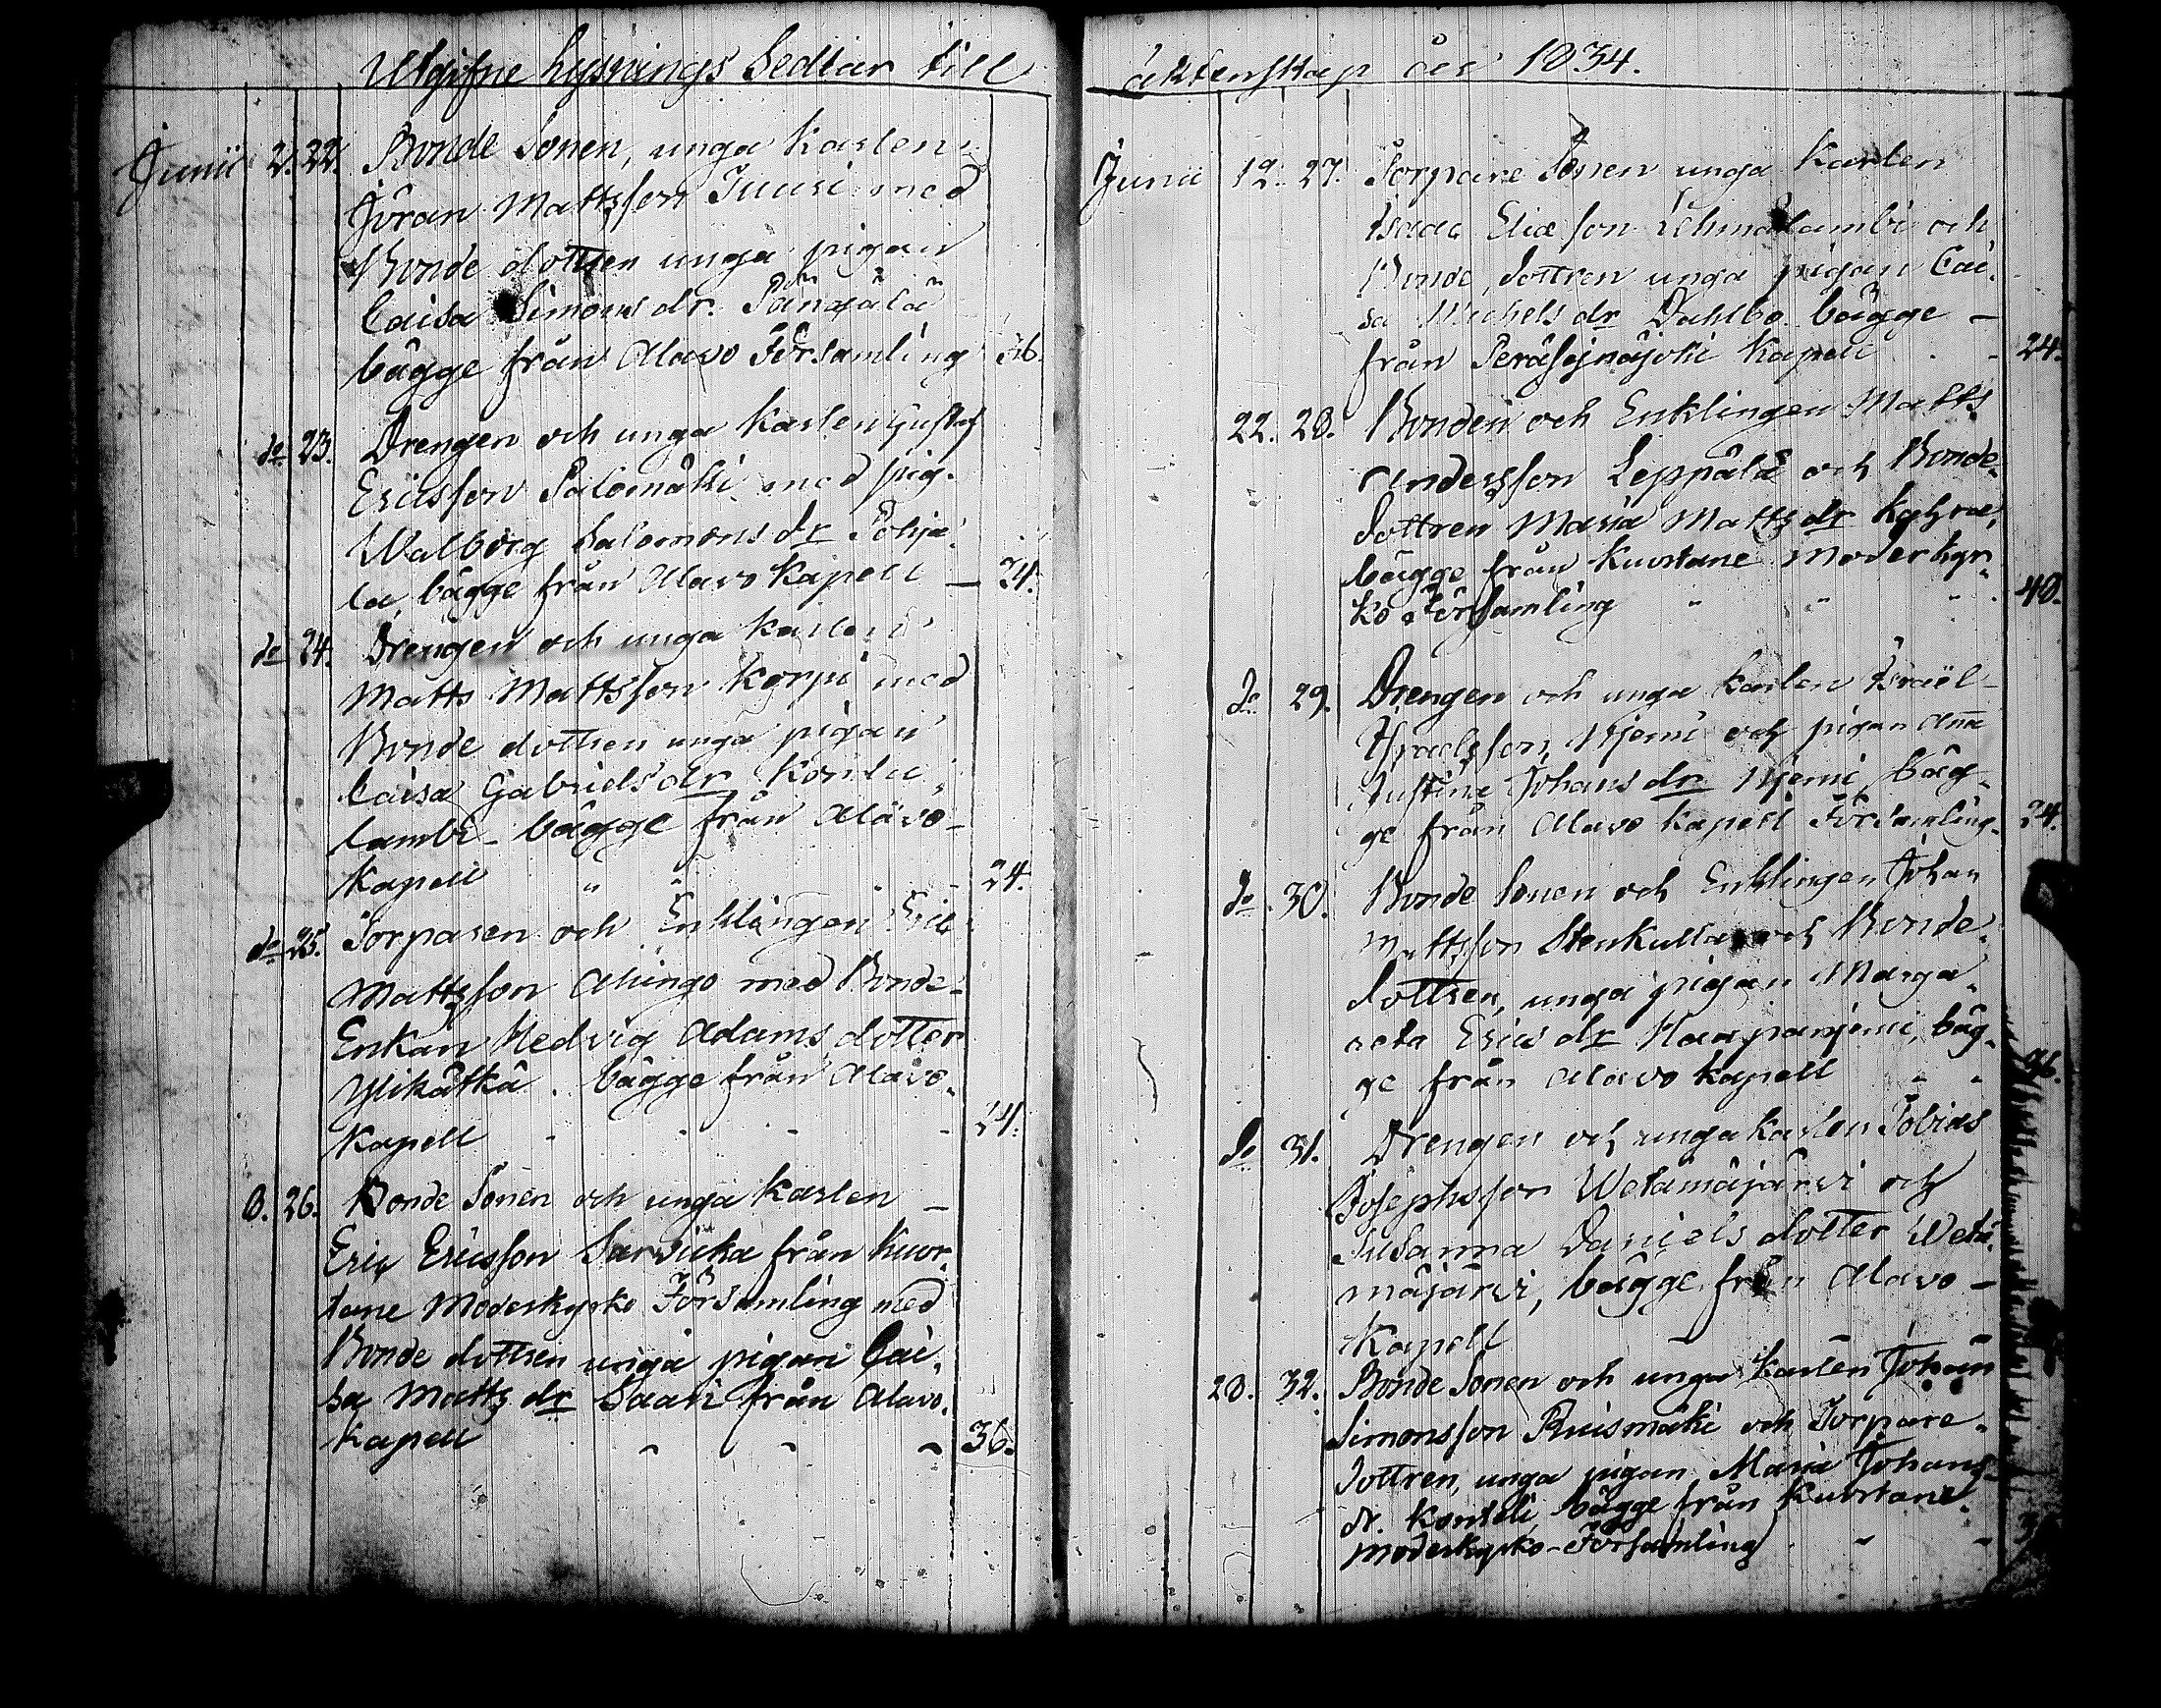 Utgifne Lysnings Sedlar till
Junii 2. 22. Bonde Sonen, unga Karlen
Jöran Mattsson Tuuri med
Bonde dottren unga pigan
Caisa Simons dr. Pängälä
bägge från Alavo Församling 36.
do 23. Drengen och unga Karlen Gustaf
Ericsson Salomäki med pig.
Walborg Salomons dr Pohja-
la, bägge från Alavo Kapell — 24.
do 24. Drengen och unga Karlen
Matts Mattsson Korpi med
Bonde dottren unga pigan
Caisa Gabriels dr Kontu-
lambi - bägge från Alavo-
Kapell " " 24.
do 25. Torparen och Enklingen Eric
Mattsson Ahingo med Bonde-
Enkan Hedvig Adams dotter
Ylikätkä . bägge från Alavo-
Kapell - - - - 24.
8. 26. Bonde Sonen och unga Karlen —
Eric Ericsson Sarvicka från Kuor-
tane Moderkyrko Församling med
Bonde dottren unga pigan Cai-
sa Matts dr Saari från Alavo-
Kapell - - - 36.
äktenskap år 1834.
Junii 12. 27. Torpare Sonen unga Karlen
Isaac Eliæsson Lehmälambi och
Bonde dottren unga pigan Cai-
sa Michels dr Dahlbo bägge —
från Peräsejnäjoki Kapell - - 24.
22. 28. Bonden och Enklingen Matts
Andersson Leppälä och Bonde-
dottren Maria Matts dr Kyhræ,
bägge från Kuortane Moderkyr-
ko Församling " " " 48.
do 29. Drengen och unga Karlen Israël
Israelsson Njemi och pigan Aña
Justina Johans dr Njemi, bäg-
ge från Alavo Kapell Församling. 24.
do 30. Bonde Sonen och Enklingen Johan
Mattsson Stenkulla och Bonde-
dottren, unga pigan Marga-
reta Erics dr Haapanjemi, bäg-
ge från Alavo Kapell " " 36.
do 31. Drengen och unga Karlen Tobias
Josephsson Wetämäjärvi och
Susanna Daniels dotter Wetä-
mäjärvi, bägge från Alavo —
Kapell
28. 32. Bonde Sonen och unga Karlen Johan
Simonsson Ruismäki och Torpare-
dottren, unga pigan Maria Johans-
dr. Konteli bägge från Kuortane-
moderkyrko-Församling - -